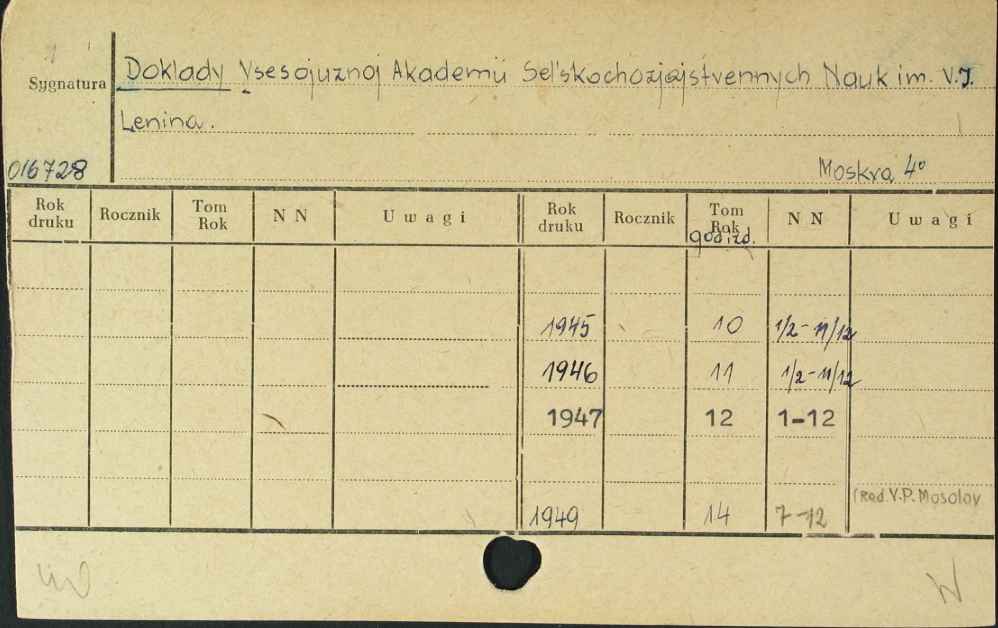 Doklady Vsesojuznoj Akademii Sel'skochozjajstvennych Nauk im. V.I.
Sygnatura
Lenina.
016728 Moskva 4°
Rok druku Rocznik Tom Rok N N Uwagi Rok druku Rocznik Tom Rok god izd. N N Uwagi
1945 10 1/2-11/12
1946 11 1/2-11/12
1947 12 1-12
(Red. V.P. Mosolov
1949 14 7-12
W